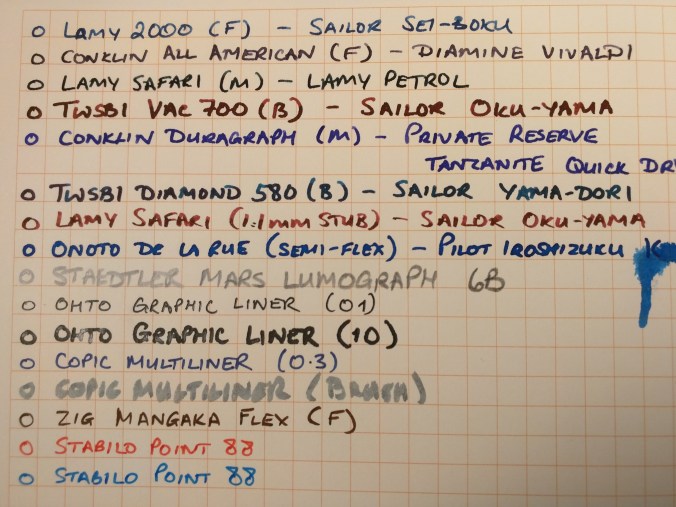 Lamy 2000 (F) - Sailor Sei-Boku
Conklin All American (F) - Diamine Vivaldi
Lamy Safari (M) - Lamy Petrol
TWSBI Vac 700 (B) - Sailor Oku-Yama
Conklin Duragraph (M) - Private Reserve
Tanzanite Quick Dr
TWSBI Diamond 580 (B) - Sailor Yama-Dori
Lamy Safari (1.1mm Stub) - Sailor Oku-Yama
Onoto De La Rue (Semi-Flex) - Pilot Iroshizuku
Staedtler Mars Lumograph 6B
Ohto Graphic Liner (01)
Ohto Graphic Liner (10)
Copic Multiliner (0.3)
Copic Multiliner (Brush)
Zig Mangaka Flex (F)
Stabilo Point 88
Stabilo Point 88